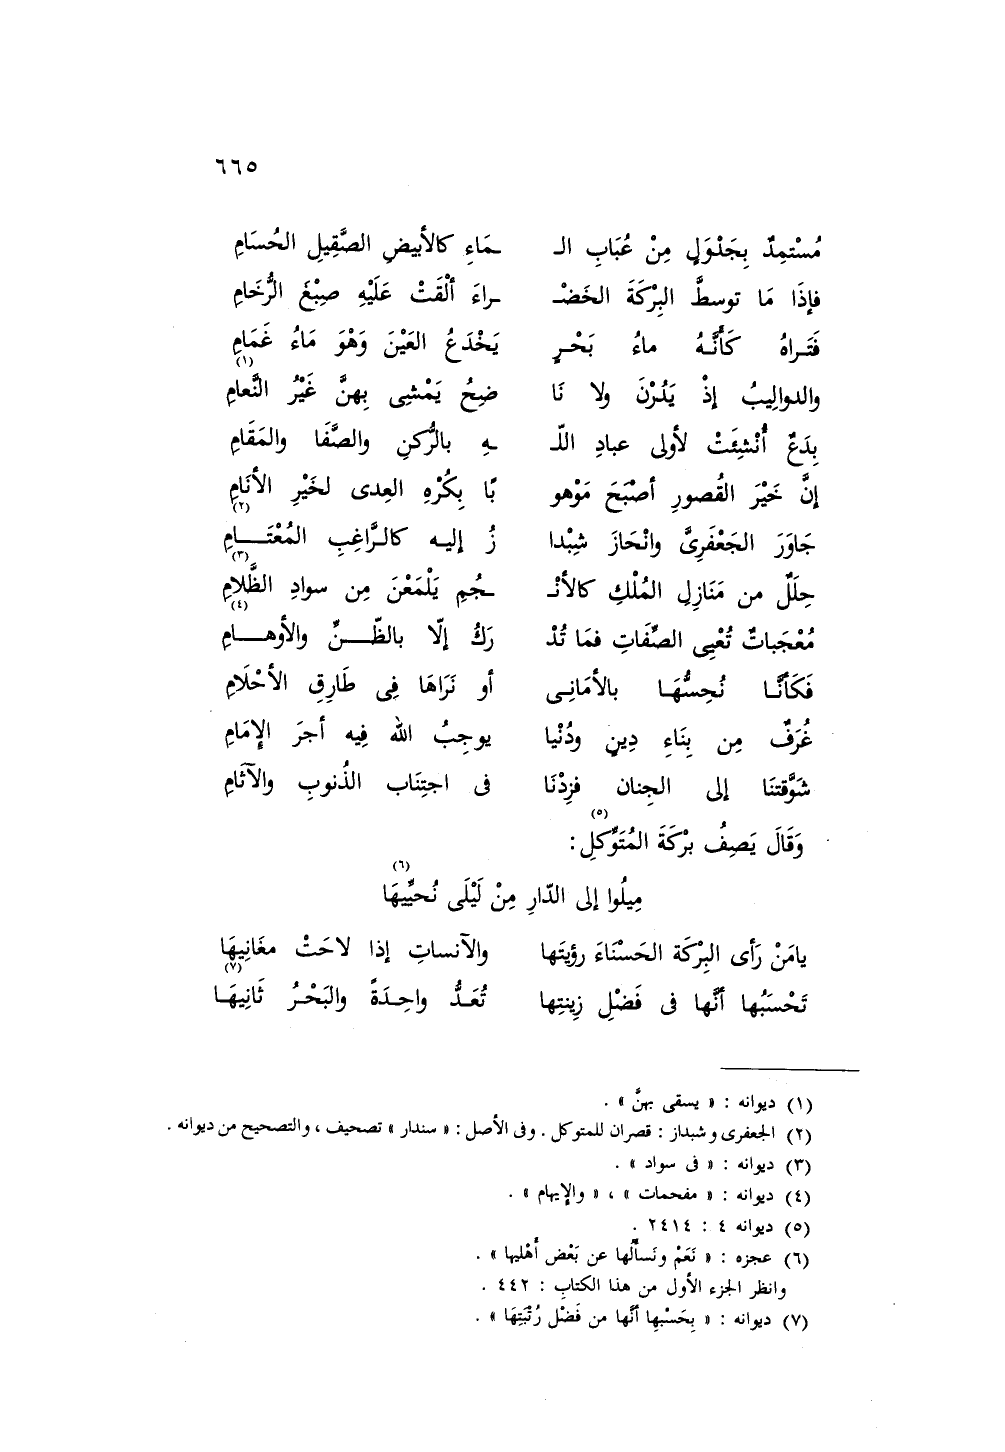 ٦٦٥
مُسْتمِدٌ بِجَدْوَلٍ مِنْ عُبَابِ الـ ـمَاءِ كالأبيضِ الصَّقِيلِ الحُسَامِ
فإذَا مَا توسطَّ البِرْكَةَ الخَضْـ ـراءَ ألْقَتْ عَلَيْهِ صِبْغَ الرُّخَامِ
فَتَـراهُ كَأنَّـهُ ماءُ بَحْـرٍ يَخْدَعُ العَيْنَ وَهْوَ مَاءُ غَمَامِ
والدواليبُ إذْ يَدُرْنَ ولا نَا ضِحُ يَمْشِى بِهنَّ غَيْرُ النَّعامِ (١)
بِدَعٌ أُنْشِئَتْ لأولى عبادِ اللّـ ـهِ بالرُّكنِ والصَّفَا والمَقَامِ
إنَّ خَيْرَ القُصورِ أصْبَحَ مَوْهو بًا بِكُرْهِ العِدى لخَيْرِ الأنَامِ
جَاوَرَ الجَعْفَرِىَّ وانْحَازَ شِبْدا زُ إليـه كالـرَّاغِبِ المُعْتَـــامِ (٢)
حِلَلٌ من مَنَازِلِ المُلْكِ كالأنْـ ـجُمِ يَلْمَعْنَ مِن سوادِ الظَّلامِ (٣)
مُعْجَباتٌ تُعْيِى الصِّفَاتِ فمَا تُدْ رَكُ إلّا بالظّـــنِّ والأوهـــامِ (٤)
فَكَأنَّـا نُحِسُّهَـا بالأمَانِـى أو نَرَاهَا فِى طَارِقِ الأحْلَامِ
غُرَفٌ مِن بِنَاءِ دِينٍ ودُنْيا يوجِبُ اللّه فِيه أجرَ الإمَامِ
شَوَّقتنَا إلى الجِنان فزِدْنَا فى اجتِنَاب الذُنوبِ والآثَامِ
وَقَالَ يَصِفُ بِرْكَةَ المُتَوِّكلِ : (٥)
مِيلُوا إلى الدّارِ مِنْ لَيْلَى نُحيِّيهَا (٦)
يامَنْ رَأى البِرْكَة الحَسْنَاءَ رؤيتَها والآنساتِ إذا لاحَتْ مغَانِيهَا
تَحْسَبُها أنَّها فى فَضْلِ زِينتِها تُعَـدُّ واحِـدَةً والبَحْـرُ ثَانِيهَـا (٧)
(١) ديوانه : « يسقى بهنَّ » .
(٢) الجعفرى وشبداز : قصران للمتوكل . وفى الأصل : « سندار » تصحيف ، والتصحيح من ديوانه .
(٣) ديوانه : « فى سواد » .
(٤) ديوانه : « مفحمات » ، « والإيهام » .
(٥) ديوانه ٤ : ٢٤١٤ .
(٦) عجزه : « نَعَمْ ونَسألُها عن بَعْض أهْليها » .
وانظر الجزء الأول من هذا الكتاب : ٤٤٢ .
(٧) ديوانه : « بِحَسْبِها أنَّها من فَضْل رُتْبَتِهَا » .